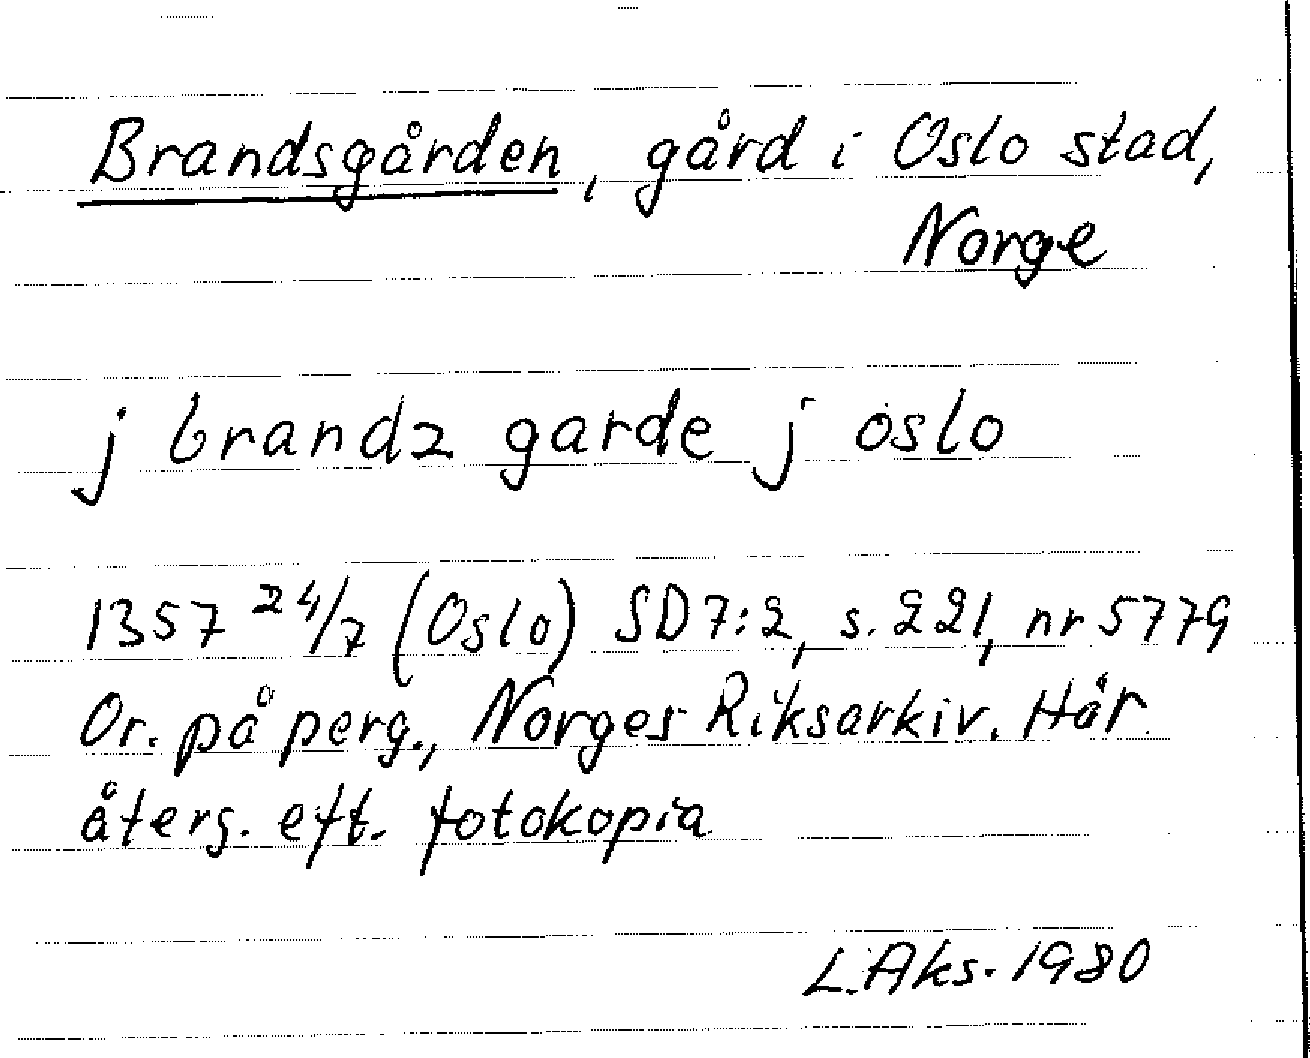 Brandsgården, gård i Oslo stad,
Norge
j brandz garde j oslo
1357 24/7 (Oslo) SD 7:2, s. 221, nr 5779
Or. på perg., Norges Riksarkiv. Här
återg. eft. fotokopia
L.Aks. 1980